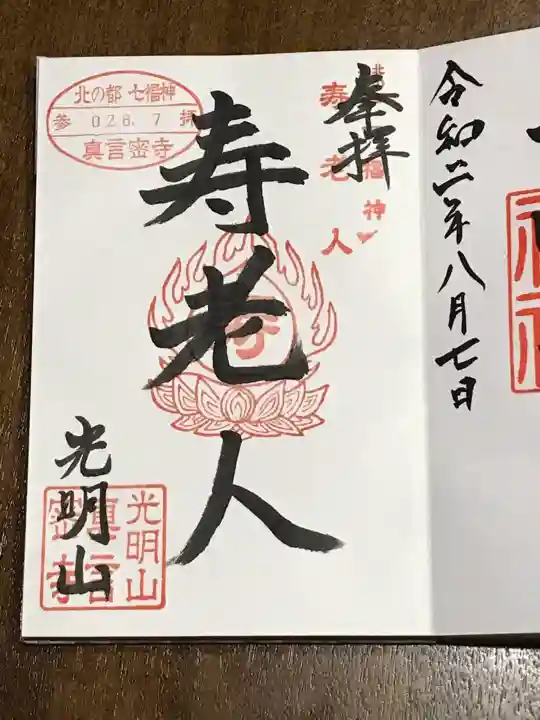 令和二年八月七日
奉拝
北の都 七福神
寿老人
寿老人
北の都 七福神
参 028.7 拝
真言密寺
光明山
光明山
真言
密寺